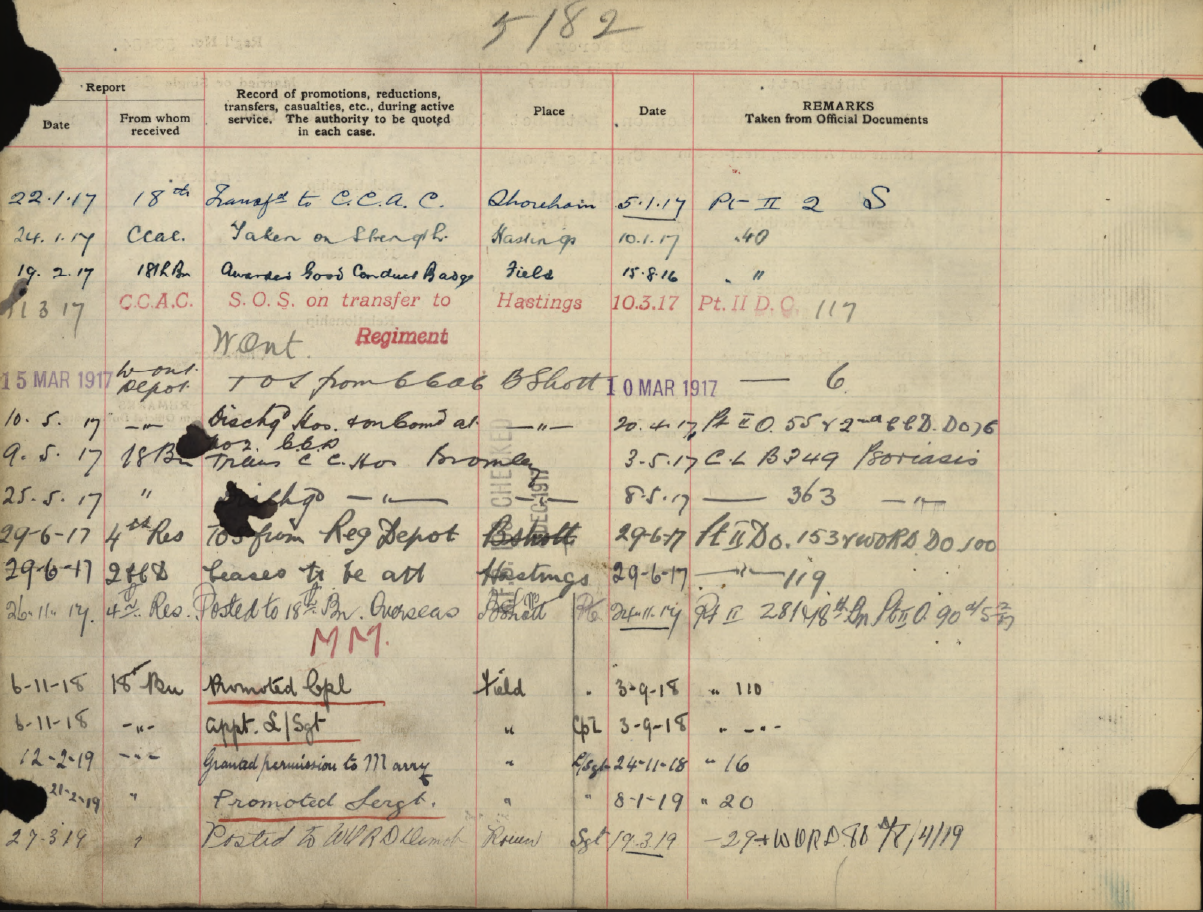 5/82
Report
Date
From whom received
Record of promotions, reductions, transfers, casualties, etc., during active service. The authority to be quoted in each case.
Place
Date
REMARKS
Taken from Official Documents
22.1.17 18th Transfd to C.C.A.C. Shoreham 5.1.17 Pt II 2 S
24.1.17 CCAC. Taken on Strength. Hastings 10.1.17 " 40
19.2.17 18th Bn Awarded Good Conduct Badge Field 15.8.16 " "
11 3 17 C.C.A.C. S.O.S. on transfer to Hastings 10.3.17 Pt. II D.O. 117
W Ont. Regiment
15 MAR 1917 W Ont. Depot. TOS from CCAC BShott 10 MAR 1917 — 6
10.5.17 -"- Dischgd Hos. & on Comd at —"— 20.4.17 Pt II O. 55 & 2nd CCD. DO 76
No 2. CCD
9.5.17 18 Bn Trans C C. Hos Bromley 3-5.17 C.L B349 Psoriasis
25-5.17 " —"— —"— 8.5.17 — 363 —"—
29-6-17 4th Res TOS from Reg Depot Bshott 29-6-17 Pt II DO. 153 & WORD DO 100
29-6-17 2CCD Ceases to be att Hastings 29-6-17 —"— 119
CHECKED
DEC 1917
26.11.17. 4th Res. Posted to 18th Bn. Overseas Bshott Pte 24.11.17 Pt II 281 & 18th Bn Pt II O. 90
MM.
6-11-18 18 Bn Promoted Cpl Field " 3-9-18 " 110
6-11-18 -"- Appt. L/Sgt " Cpl 3-9-18 " -"-
12-2-19 -"- Granted permission to Marry " L/Sgt 24-11-18 " 16
21-2-19 " Promoted Sergt. " " 8-1-19 " 20
27.3.19 " Posted to WORD Rouen Sgt 19.3.19 — 29 & WORD 80 /4/19